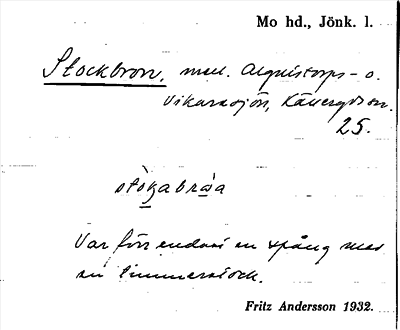 Mo hd., Jönk. l.
Stockbron, mell. Alquistorps- o.
Vikaresjön, Källeryds sn.
25.
stòkabràa
Var förr endast en spång med
en timmerstock.
Fritz Andersson 1932.